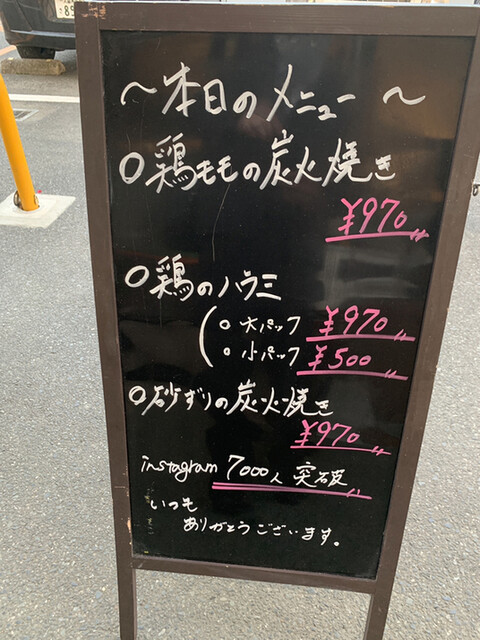 ～本日のメニュー～
○鶏ももの炭火焼き
¥970
○鶏のハラミ
○大パック ¥970
○小パック ¥500
○砂ずりの炭火焼き
¥970
instagram 7000人 突破
いつも
ありがとうございます。